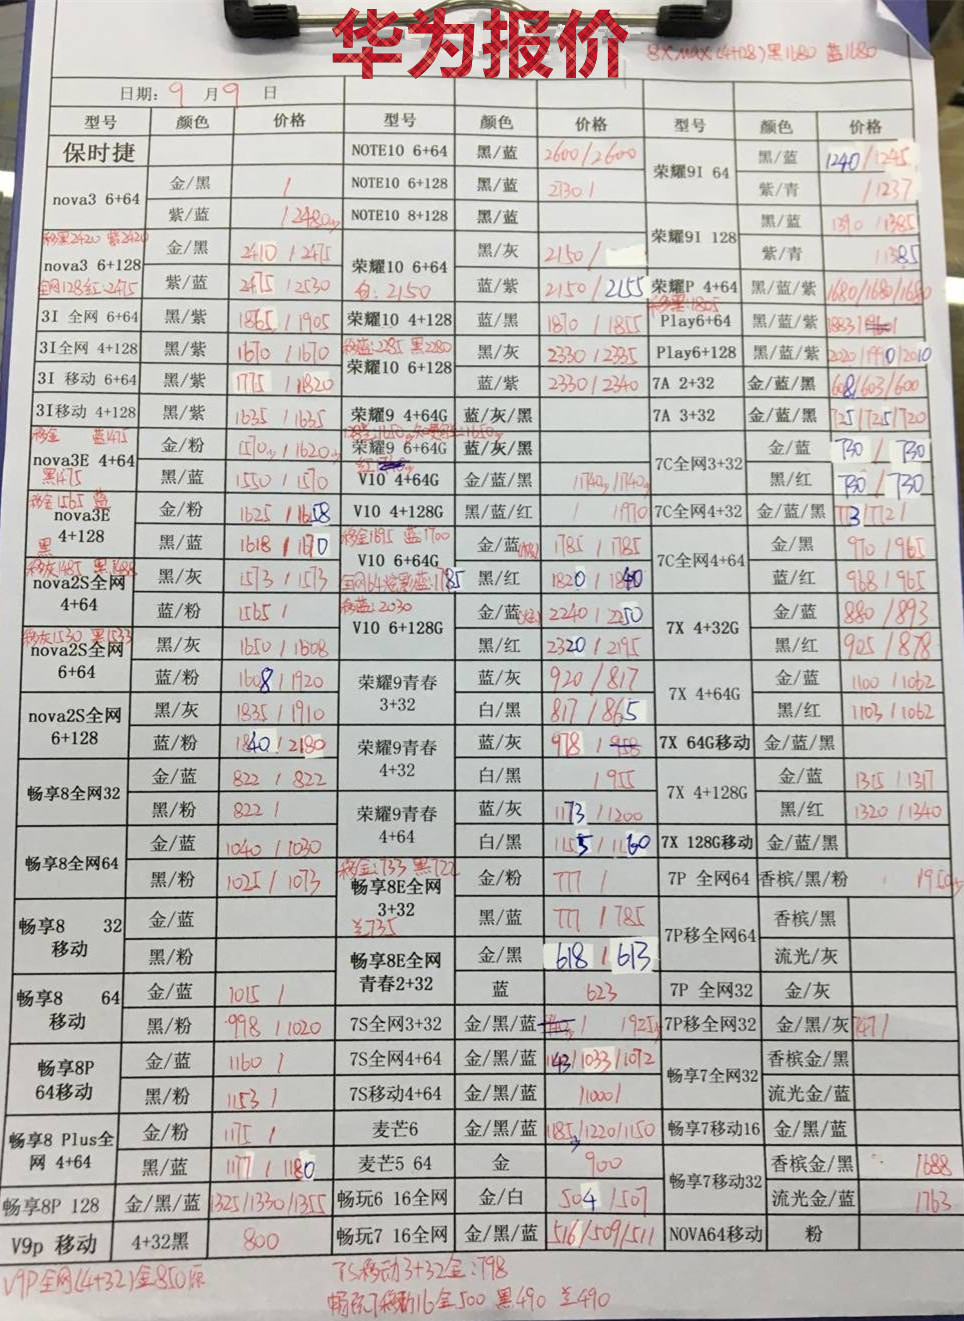 华为报价
8X MAX (4+128) 黑1680 蓝1680
日期: 9 月 9 日
型号 颜色 价格 型号 颜色 价格 型号 颜色 价格
保时捷 NOTE10 6+64 黑/蓝 2600/2600 荣耀9I 64 黑/蓝 1240/1245
nova3 6+64 金/黑 / NOTE10 6+128 黑/蓝 2730/ 紫/青 /1237
紫/蓝 /2480 NOTE10 8+128 黑/蓝 荣耀9I 128 黑/蓝 1390/1385
移黑2420 紫2420
nova3 6+128 金/黑 2410/2475 荣耀10 6+64 黑/灰 2150/ 紫/青 /1385
全网128红:2475 紫/蓝 2475/2530 白:2150 蓝/紫 2150/2155 荣耀P 4+64 黑/蓝/紫 1680/1680/1680
3I 全网 6+64 黑/紫 1865/1905 荣耀10 4+128 蓝/黑 1870/1855 移黑:1805 Play6+64 黑/蓝/紫 1883/
3I全网 4+128 黑/紫 1670/1670 移蓝:2285 黑2280 荣耀10 6+128 黑/灰 2330/2335 Play6+128 黑/蓝/紫 2020/1990/2010
3I 移动 6+64 黑/紫 1775/1820 蓝/紫 2330/2340 7A 2+32 金/蓝/黑 608/603/600
3I移动 4+128 黑/紫 1635/1635 荣耀9 4+64G 蓝/灰/黑 7A 3+32 金/蓝/黑 725/725/720
移金 蓝1475
nova3E 4+64 金/粉 1570/1620 荣耀9 6+64G 蓝/灰/黑 7C全网3+32 金/蓝 730/730
黑1475 黑/蓝 1550/1570 V10 4+64G 金/蓝/黑 /1740/1740 黑/红 730/730
移金1565 蓝
nova3E 4+128 金/粉 1625/1658 V10 4+128G 黑/蓝/红 / 1970 7C全网4+32 金/蓝/黑 773/772/
黑 黑/蓝 1618/1670 移金1695 蓝1700 V10 6+64G 金/蓝 1785/1785 7C全网4+64 金/黑 970/965
移灰1485 黑1488
nova2S全网 4+64 黑/灰 1573/1573 黑/红 1820/1840 蓝/红 968/965
蓝/粉 1565/ 移蓝:2030 V10 6+128G 金/蓝 2240/2250 7X 4+32G 金/蓝 880/893
移灰1530 黑1533
nova2S全网 6+64 黑/灰 1650/1608 黑/红 2320/2195 黑/红 925/878
蓝/粉 1608/1920 荣耀9青春 3+32 蓝/灰 920/817 7X 4+64G 金/蓝 1100/1062
nova2S全网 6+128 黑/灰 1835/1910 白/黑 817/865 黑/红 1103/1062
蓝/粉 1840/2180 荣耀9青春 4+32 蓝/灰 978/958 7X 64G移动 金/蓝/黑
畅享8全网32 金/蓝 822/822 白/黑 /955 7X 4+128G 金/蓝 1315/1317
黑/粉 822/ 荣耀9青春 4+64 蓝/灰 1173/1200 黑/红 1320/1340
畅享8全网64 金/蓝 1040/1030 白/黑 1155/1160 7X 128G移动 金/蓝/黑
黑/粉 1025/1073 移金:733 黑722 畅享8E全网 3+32 金/粉 777/ 7P 全网64 香槟/黑/粉 1950
畅享8 32 移动 金/蓝 兰735 黑/蓝 777/785 7P移全网64 香槟/黑
黑/粉 畅享8E全网 青春2+32 金/黑 618/613 流光/灰
畅享8 64 移动 金/蓝 1015/ 蓝 623 7P 全网32 金/灰
黑/粉 998/1020 7S全网3+32 金/黑/蓝 / 1925 7P移全网32 金/黑/灰 747/
畅享8P 64移动 金/蓝 1160/ 7S全网4+64 金/黑/蓝 1143/1033/1072 畅享7全网32 香槟金/黑
黑/粉 1153/ 7S移动4+64 金/黑/蓝 /1000/ 流光金/蓝
畅享8 Plus全网 4+64 金/粉 1175/ 麦芒6 1185/1220/1150 畅享7移动16 金/黑/蓝
黑/蓝 1177/1180 麦芒5 64 金 900 畅享7移动32 香槟金/黑 1688
畅享8P 128 金/黑/蓝 1325/1330/1355 畅玩6 16全网 金/白 504/507 流光金/蓝 1763
V9p 移动 4+32黑 800 畅玩7 16全网 金/黑/蓝 516/509/511 NOVA64移动 粉
V9P全网(4+32)金850
7S移动3+32金:798
畅玩7移动16金500 黑490 兰490